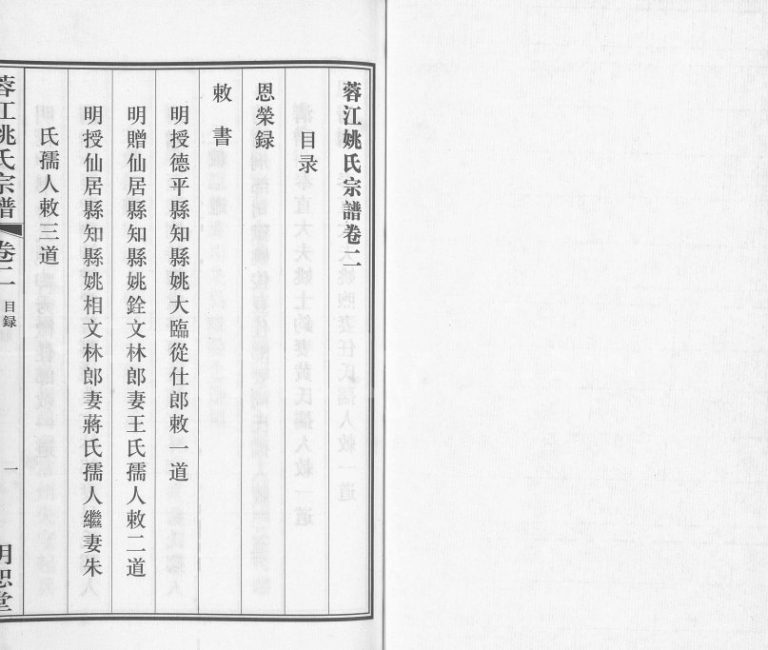 蓉江姚氏宗譜卷二
目录
恩榮録
敕書
明授德平縣知縣姚大臨從仕郎敕一道
明贈仙居縣知縣姚銓文林郎妻王氏孺人敕二道
明授仙居縣知縣姚相文林郎妻蔣氏孺人繼妻朱
氏孺人敕三道
蓉江姚氏宗譜
卷二
目録
一
明恕堂